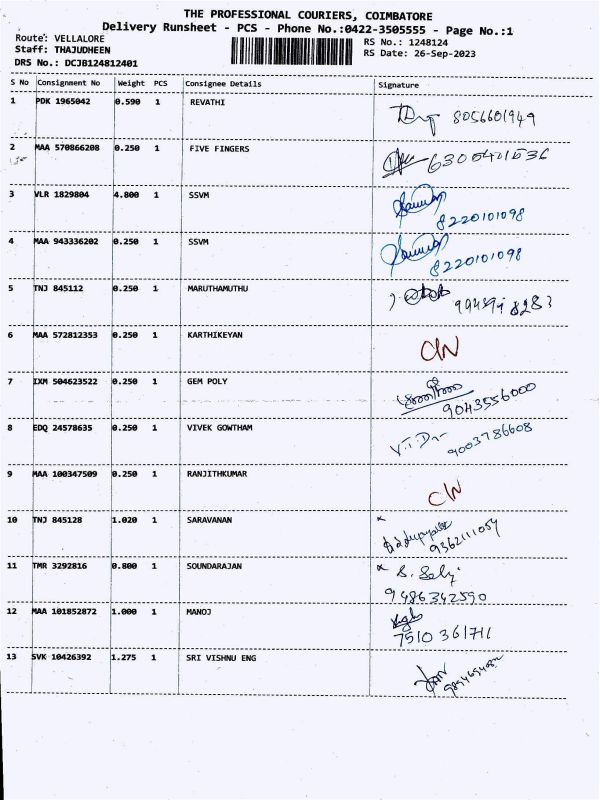 THE PROFESSIONAL COURIERS, COIMBATORE
Delivery Runsheet - PCS - Phone No.:0422-3505555 - Page No.:1
Route: VELLALORE RS No.: 1248124
Staff: THAJUDHEEN RS Date: 26-Sep-2023
DRS No.: DCJB124812401
S No Consignment No Weight PCS Consignee Details Signature
1 PDK 1965042 0.590 1 REVATHI 8056601949
2 MAA 570866208 0.250 1 FIVE FINGERS
3 VLR 1829804 4.800 1 SSVM 8220101098
4 MAA 943336202 0.250 1 SSVM 8220101098
5 TNJ 845112 0.250 1 MARUTHAMUTHU
6 MAA 572812353 0.250 1 KARTHIKEYAN
7 IXM 504623522 0.250 1 GEM POLY 9043556000
8 EDQ 24578635 0.250 1 VIVEK GOWTHAM 9003786608
9 MAA 100347509 0.250 1 RANJITHKUMAR
10 TNJ 845128 1.020 1 SARAVANAN
11 TMR 3292816 0.800 1 SOUNDARAJAN 9486342590
12 MAA 101852872 1.000 1 MANOJ 7510 361711
13 SVK 10426392 1.275 1 SRI VISHNU ENG